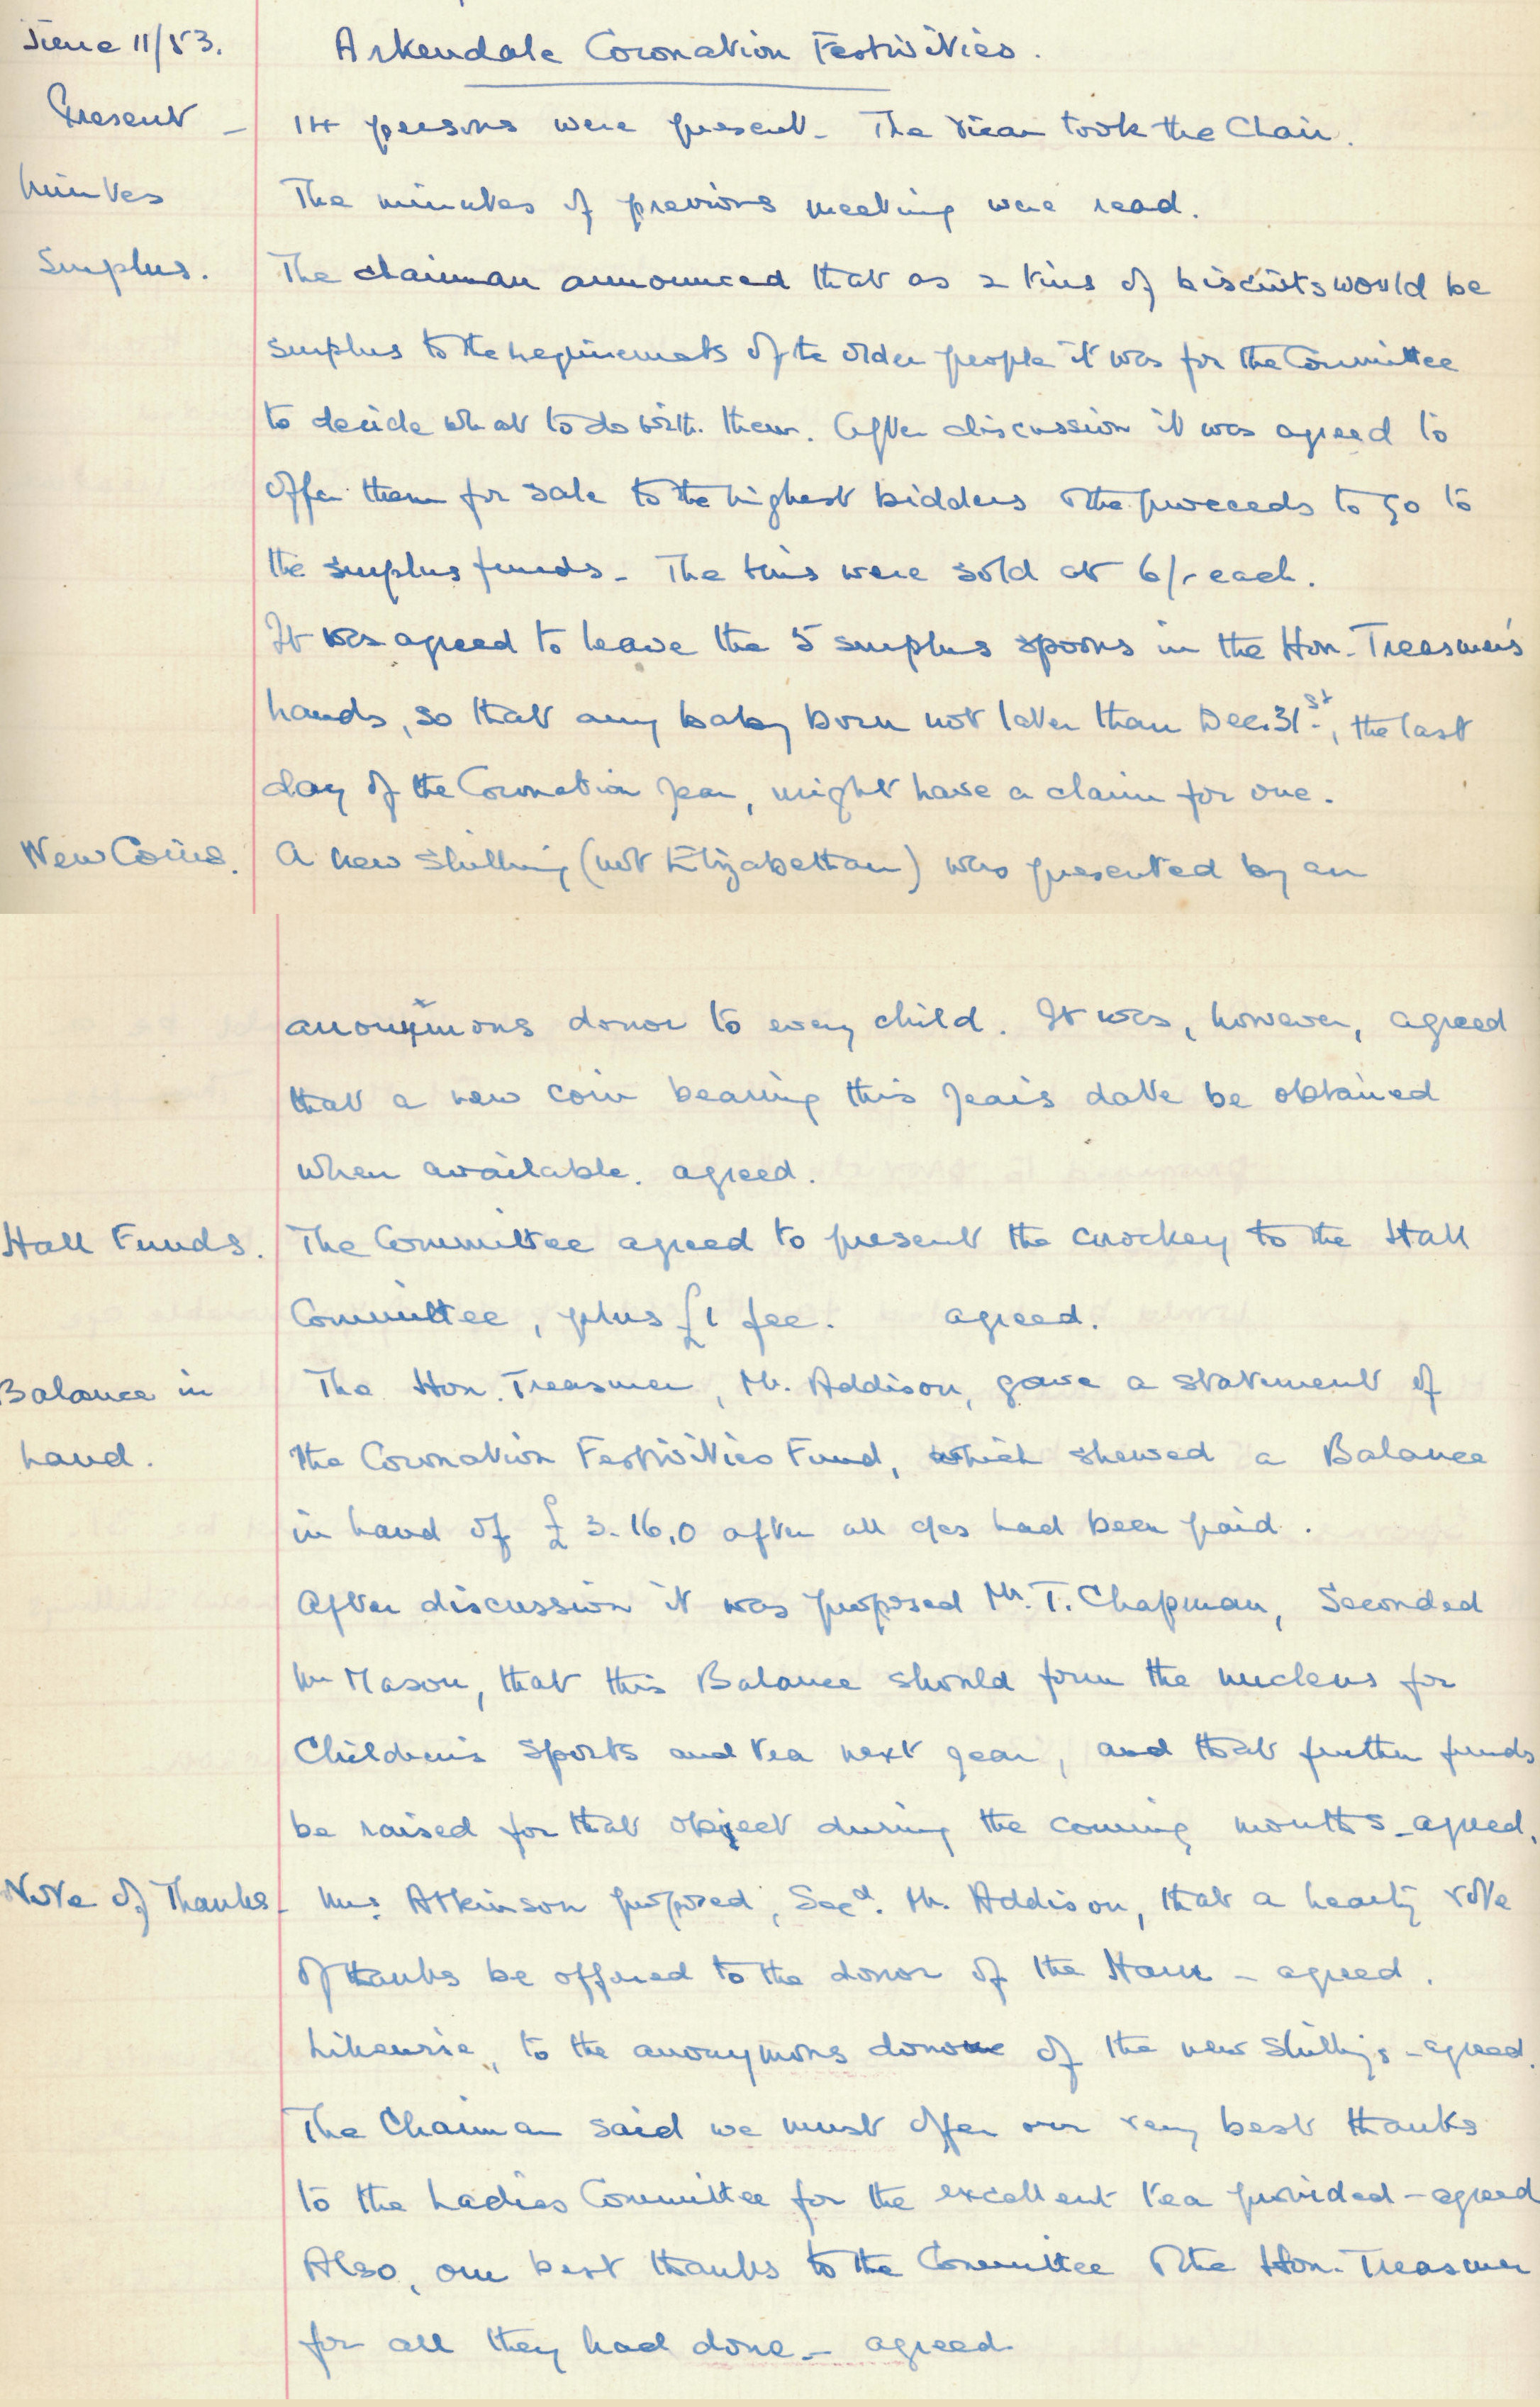 June 11/53. Arkendale Coronation Festivities.
Present - 14 persons were present - The Vicar took the Chair.
Minutes The minutes of previous meeting were read.
Surplus. The chairman announced that as 2 tins of biscuits would be
surplus to the requirements of the older people it was for the Committee
to decide what to do with them. After discussion it was agreed to
offer them for sale to the highest bidders & the proceeds to go to
the surplus funds - The tins were sold at 6/- each.
It was agreed to leave the 5 surplus spoons in the Hon. Treasurer's
hands, so that any baby born not later than Dec. 31st, the last
day of the Coronation year, might have a claim for one.
New Coins. A new shilling (not Elizabethan) was presented by an
anonymous donor to every child. It was, however, agreed
that a new coin bearing this year's date be obtained
when available. agreed.
Hall Funds. The Committee agreed to present the crockey to the Hall
Committee, plus £1 fee. agreed.
Balance in The Hon. Treasurer, Mr. Addison, gave a statement of
hand. the Coronation Festivities Fund, which shewed a Balance
in hand of £3.16.0 after all a/cs had been paid.
After discussion it was proposed Mr. T. Chapman, Seconded
Mr Mason, that this Balance should form the nucleus for
Children's Sports and tea next year, and that further funds
be raised for that object during the coming months - agreed.
Vote of Thanks - Mrs. Atkinson proposed, Secd. Mr. Addison, that a hearty vote
of thanks be offered to the donor of the Ham - agreed.
Likewise, to the anonymous donor of the new shillings - agreed.
The Chairman said we must offer our very best thanks
to the Ladies Committee for the excellent tea provided - agreed
Also, our best thanks to the Committee & the Hon. Treasurer
for all they had done - agreed